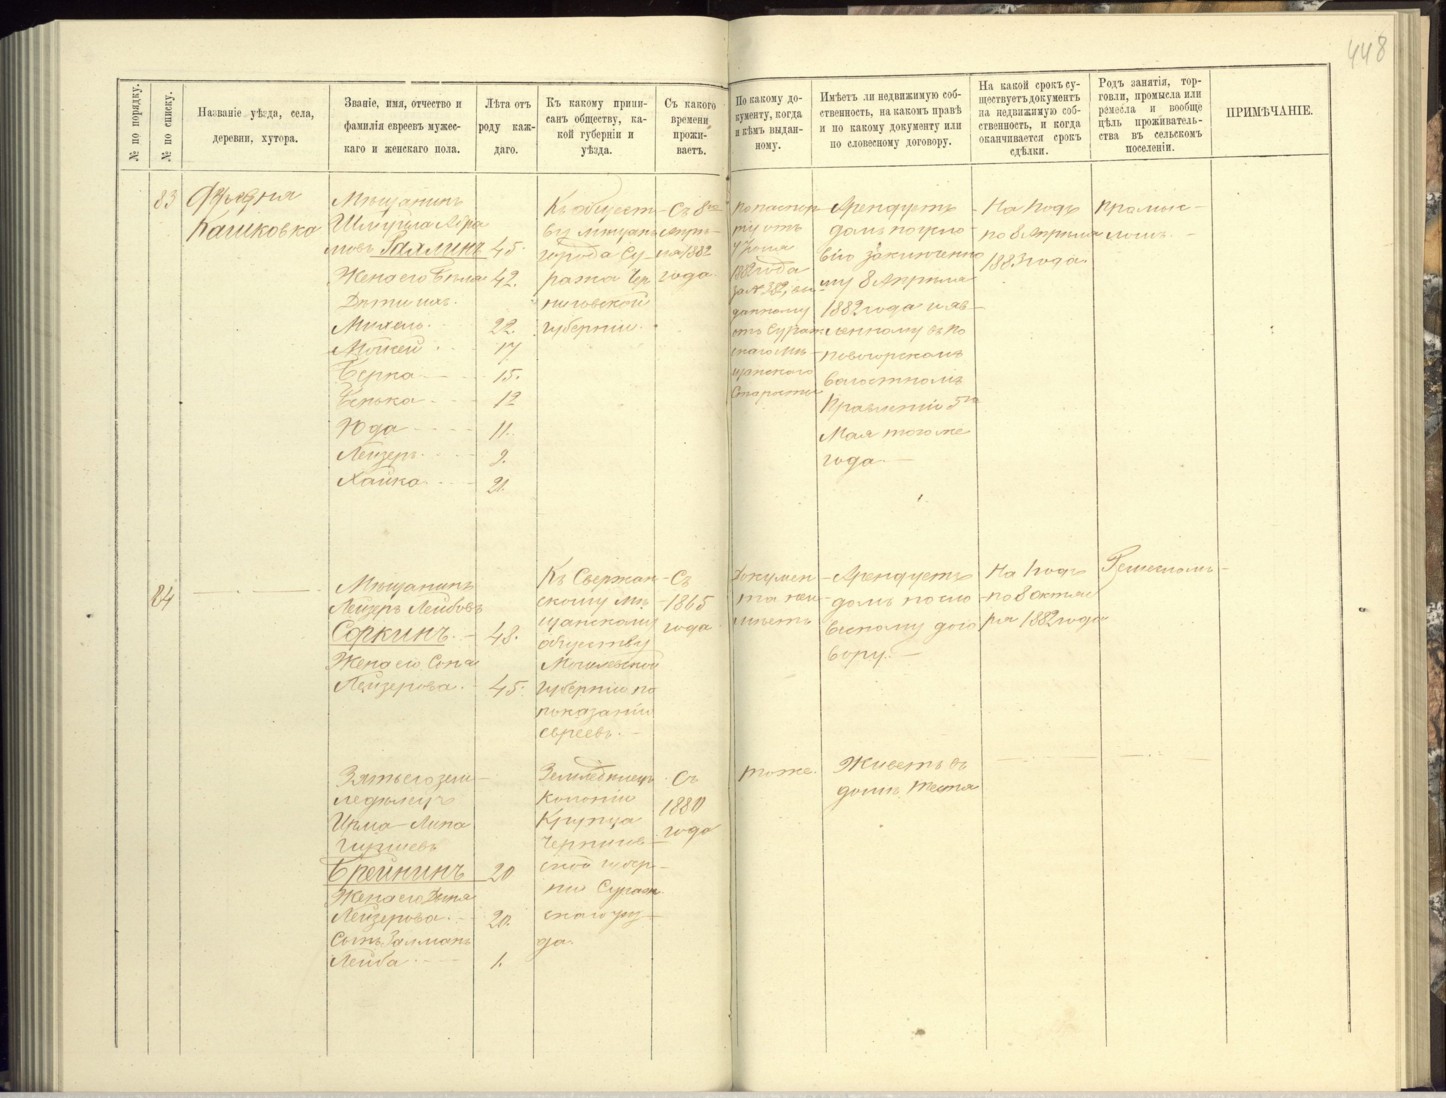 448
№ по порядку.
№ по списку.
Названіе уѣзда, села,
деревни, хутора.
Званіе, имя, отчество и
фамилія евреевъ мужес-
каго и женскаго пола.
Лѣта отъ
роду каж-
даго.
Къ какому припи-
санъ обществу, ка-
кой губерніи и
уѣзда.
Съ какого
времени
прожи-
ваетъ.
По какому до-
кументу, когда
и кѣмъ выдан-
ному.
Имѣетъ ли недвижимую соб-
ственность, на какомъ правѣ
и по какому документу или
по словесному договору.
На какой срокъ су-
ществуетъ документъ
на недвижимую соб-
ственность, и когда
оканчивается срокъ
сдѣлки.
Родъ занятія, тор-
говли, промысла или
ремесла и вообще
цѣль проживатель-
ства въ сельскомъ
поселеніи.
ПРИМѢЧАНІЕ.
83
Деревня
Кашковка
Мѣщанинъ
Шмуйла Абра
мовъ 45.
Жена его 42.
Дѣти ихъ.
Михель 22.
Мовшей 17
Берка 15.
12
Юда 11.
Лейзеръ 9.
Хайка 21.
Къ общест-
ву мѣщанъ
города Су-
ража Чер
ниговской
губерніи.
Съ 8го
Апрѣ-
ля 1882
года
По паспор-
ту отъ
7 Іюня
1882 года
за № 282, вы
данному
отъ Сураж-
скаго мѣ-
щанского
Старосты
Арендуетъ
домъ по усло-
вію заключенно
му 8 Апрѣля
1882 года и яв-
ленному въ По
повогорскомъ
волостномъ
Правленіи 5го
Мая того же
года.
На годъ
по 8 Апрѣля
1883 года
Промыс-
ломъ.
84
Мѣщанинъ
Лейзеръ Лейбовъ
Соркинъ. 48.
Жена его Сора
Лейзерова. 45.
Къ Свержан-
скому мѣ-
щанскому
обществу
Могилевской
губерніи по
показанію
евреевъ.
Съ
1865
года
Докумен
та не и-
мѣетъ
Арендуетъ
домъ по сло-
весному дого
вору.
На годъ
по 8 октяб
ря 1882 года
Ремесломъ
Зять его зем-
ледѣлецъ
Липа
Брейнинъ 20
Жена его
Лейзерова. 20.
Сынъ Залманъ
Лейба 1.
Земледѣлецъ
колоніи
Чернигов-
ской губер-
ніи Сураж
скаго уѣз-
да.
Съ
1880
года
тоже.
Живетъ въ
домѣ тестя